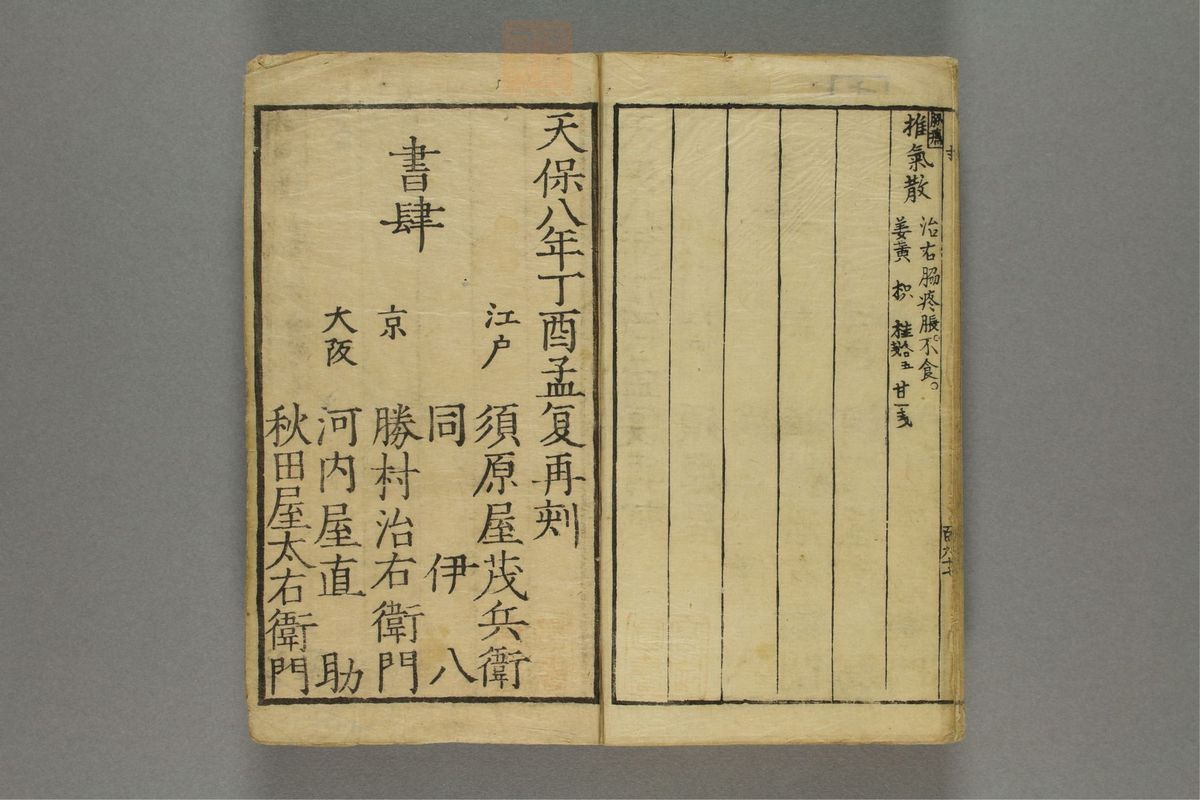 推氣散
治右肠疼脹。不食。
姜黄 枳 桂各五 甘一戔
百六十七
天保八年丁酉孟夏再刻
書肆
江戸 須原屋茂兵衛
同 伊八
京 勝村治右衛門
大阪 河内屋直助
秋田屋太右衛門